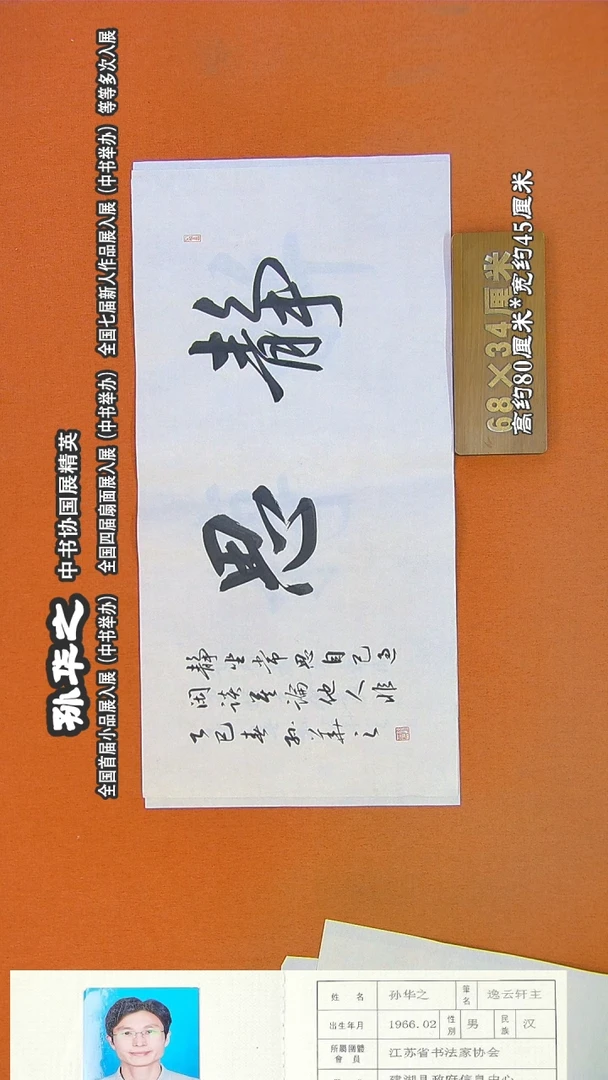 孙华之 中书协国展精英
全国首届小品展入展（中书举办） 全国四届扇面展入展（中书举办） 全国七届新人作品展入展（中书举办） 等等多次入展
静思
静坐常思自己过
闲谈莫論他人非
乙巳春孙華之
68×34厘米
高约80厘米*宽约45厘米
姓名 孙华之 筆名 逸云轩主
出生年月 1966.02 性别 男 民族 汉
所屬團體會員 江苏省书法家协会
建湖县政府信息中心